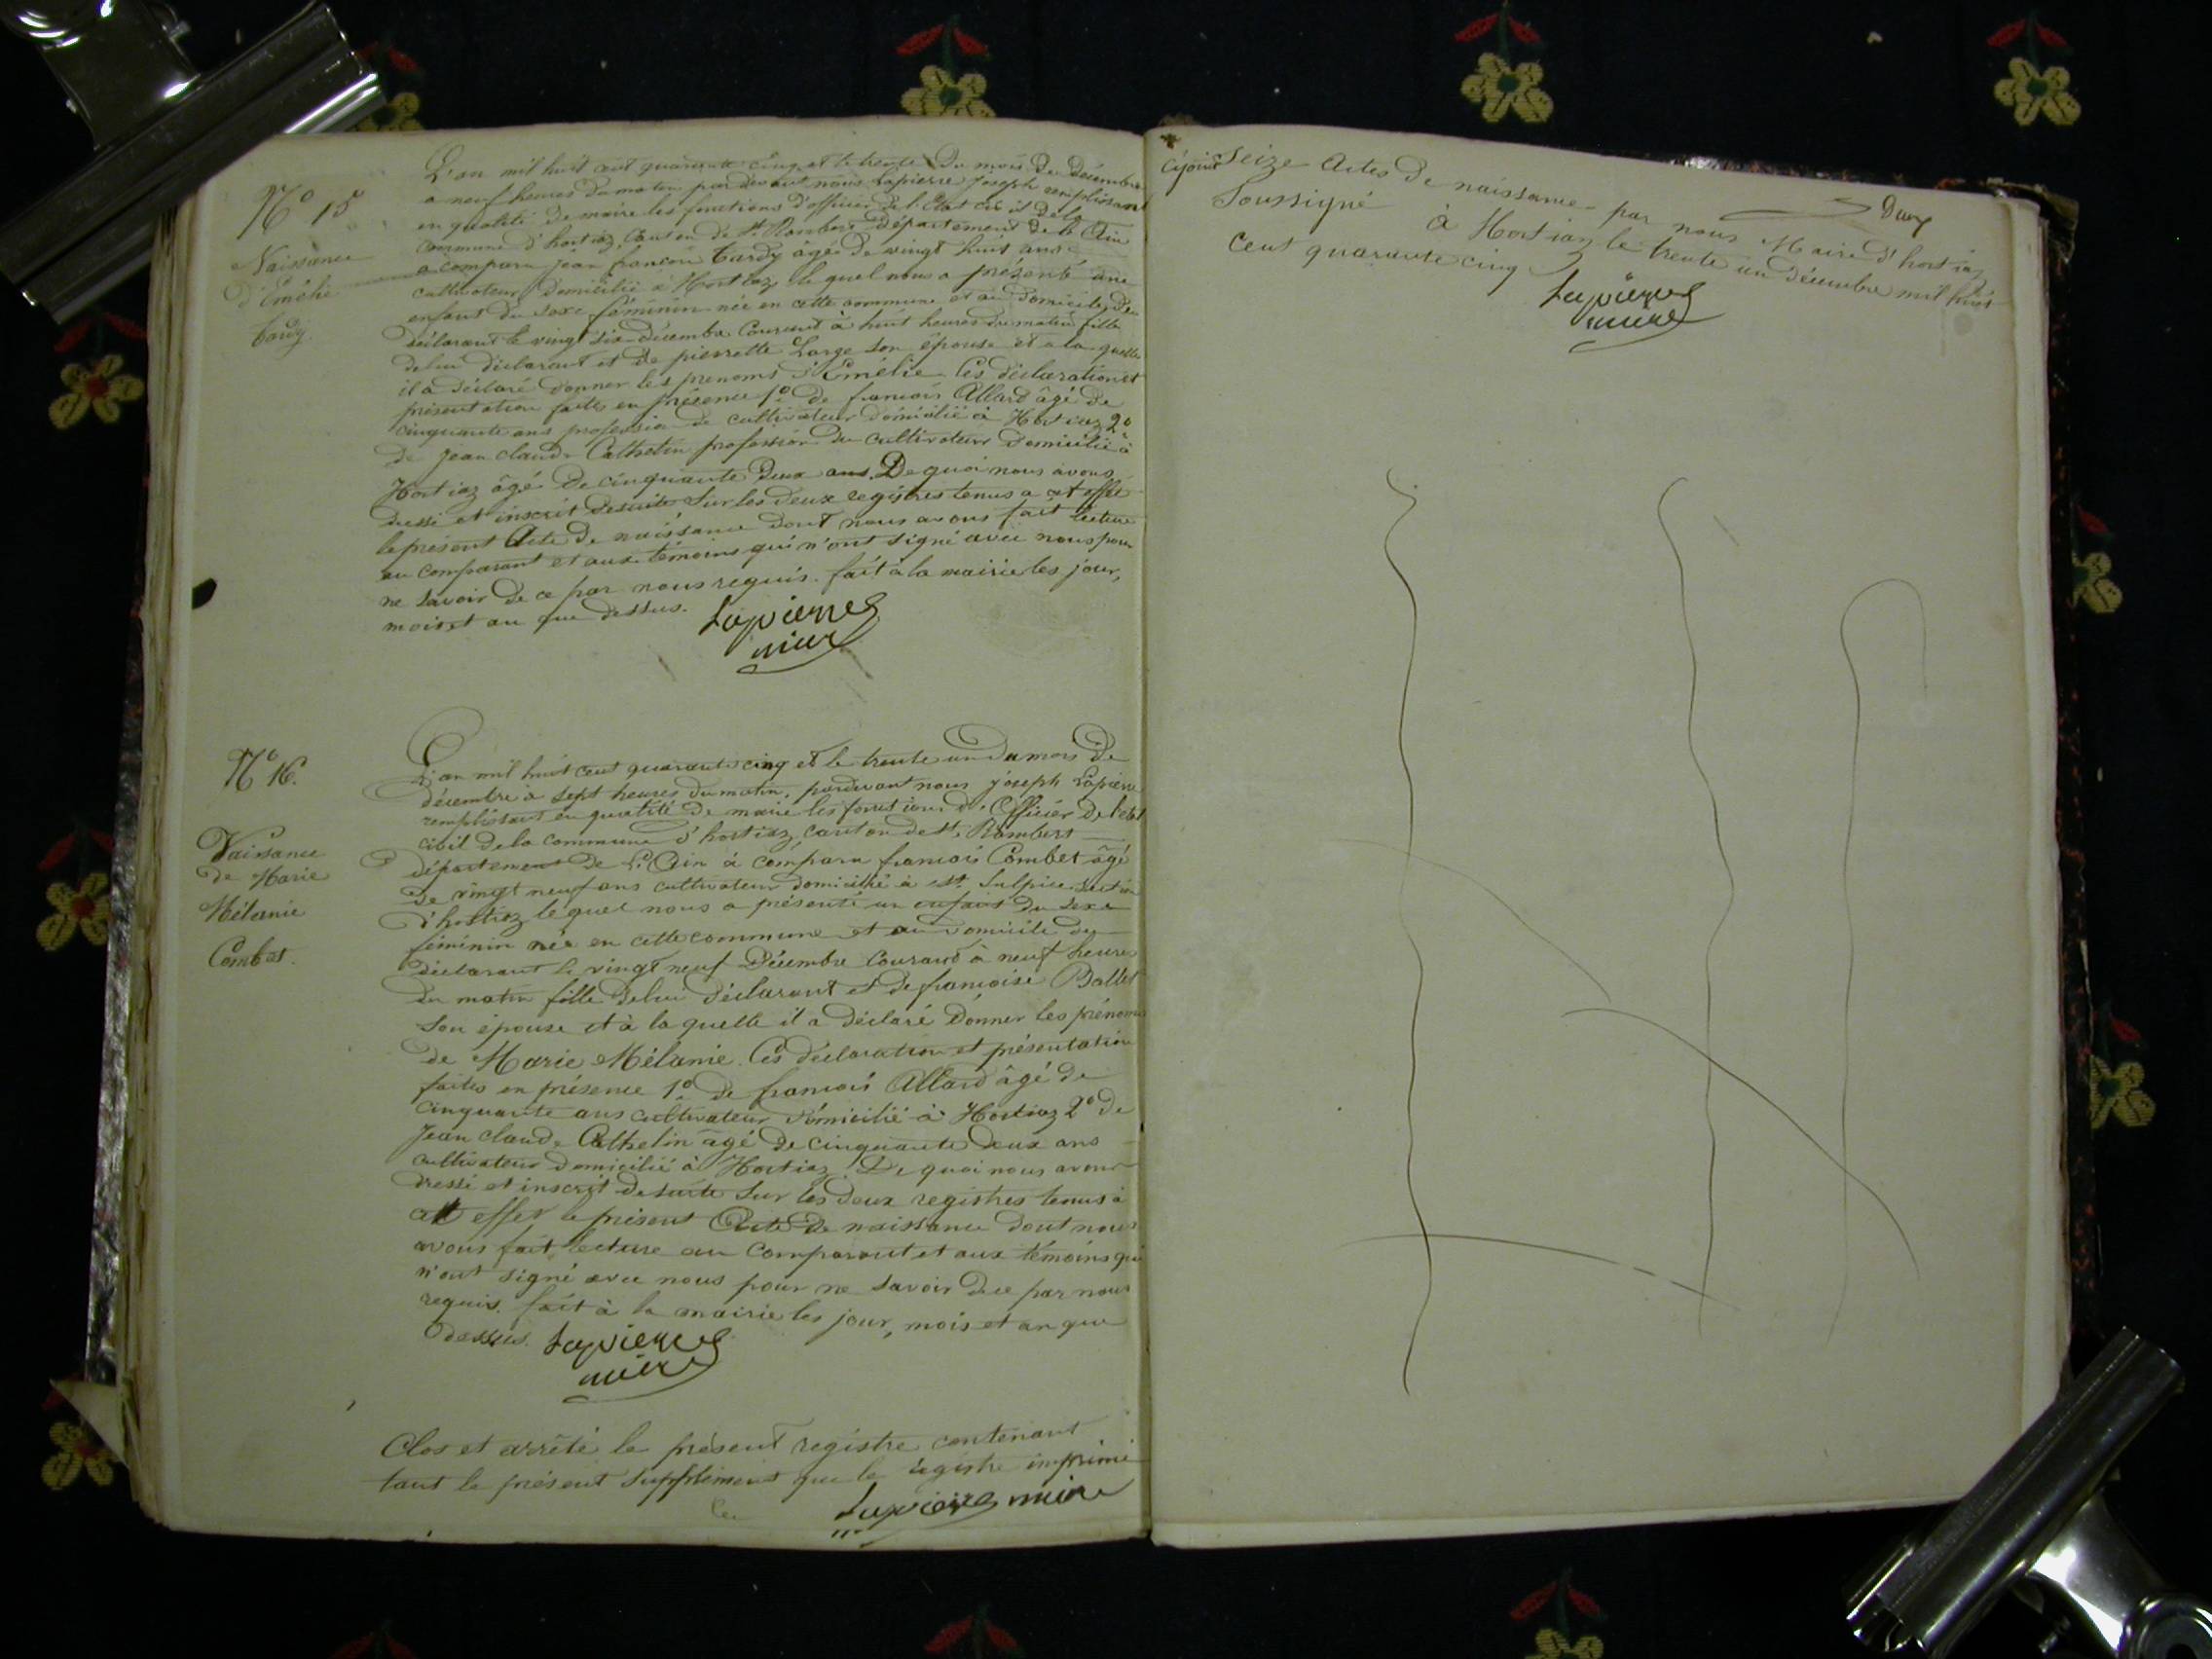 N° 15
Naissance
d'Émélie
tardy.
L'an mil huit cent quarante cinq et le trente du mois de décembre
a neuf heures du matin par devant nous Lapierre Joseph remplissant
en qualité de maire les fonctions d'officier de l'Etat civil de la
commune d'hostiaz, Canton de St Rambert Département de l'Ain
a comparu jean francois tardy âgé de vingt huit ans
cultivateur Domicilié à Hostiaz, le quel nous a présenté une
enfant du sexe féminin née en cette commune et au Domicile du
déclarant le vingt six décembre Courant à huit heures du matin fille
de lui déclarant et de pierrette Large son épouse et a la quelle
il a déclaré donner les prenoms d'Émélie. Ces déclaration et
présentation faites en présence 1° de francois Allard âgé de
cinquante ans profession de cultivateur domicilié à Hostiaz 2°
de jean claude Cathelin profession de cultivateur Domicilié à
Hostiaz âgé de cinquante Deux ans. De quoi nous avons
dressé et inscrit desuite sur les deux registres tenus a cet effet
le présent Acte de naissance dont nous avons fait lecture
au comparant et aux témoins qui n'ont signé avec nous pour
ne savoir de ce par nous requis. fait à la mairie les jour,
mois et an que dessus.
Lapierre
mire
N° 16.
Naissance
de Marie
Mélanie
Combet.
L'an mil huit cent quarante cinq et le trente un du mois de
décembre à sept heures du matin, pardevant nous joseph Lapierre
remplissant en qualité de maire les fonctions de Officier de l'etat
civil de la commune d'hostiaz, canton de St. Rambert
département de L'Ain à comparu francois Combet âgé
de vingt neuf ans cultivateur domicilié à St. Sulpice section
d'hostiaz le quel nous a présenté un enfant du sexe
féminin née en cette commune et au domicile du
déclarant le vingt neuf Décembre Courant à neuf heures
du matin fille de lui déclarant et de francoise Ballet
son épouse et à la quelle il a déclaré Donner les prénoms
de Marie Mélanie. Ces déclaration et présentation
faites en présence 1° de francois Allard âgé de
cinquante ans cultivateur domicilié à Hostiaz 2° de
Jean claude Cathelin âgé de cinquante deux ans
cultivateur domicilié à Hostiaz. De quoi nous avons
dressé et inscrit desuite sur les deux registres tenus à
cet effet le présent Acte de naissance dont nous
avons fait lecture au Comparant et aux témoins qui
n'ont signé avec nous pour ne savoir de ce par nous
requis. fait à la mairie les jour, mois et an que
dessus. Lapierre
mire
Clos et arrêté le présent registre contenant
tant le présent supplément que le registre imprimé
Lapierre mire
cijoint seize Actes de naissance par nous Maire d'hostiaz
Soussigné à Hostiaz le trente un décembre mil huit
cent quarante cinq
Lapierre
mire